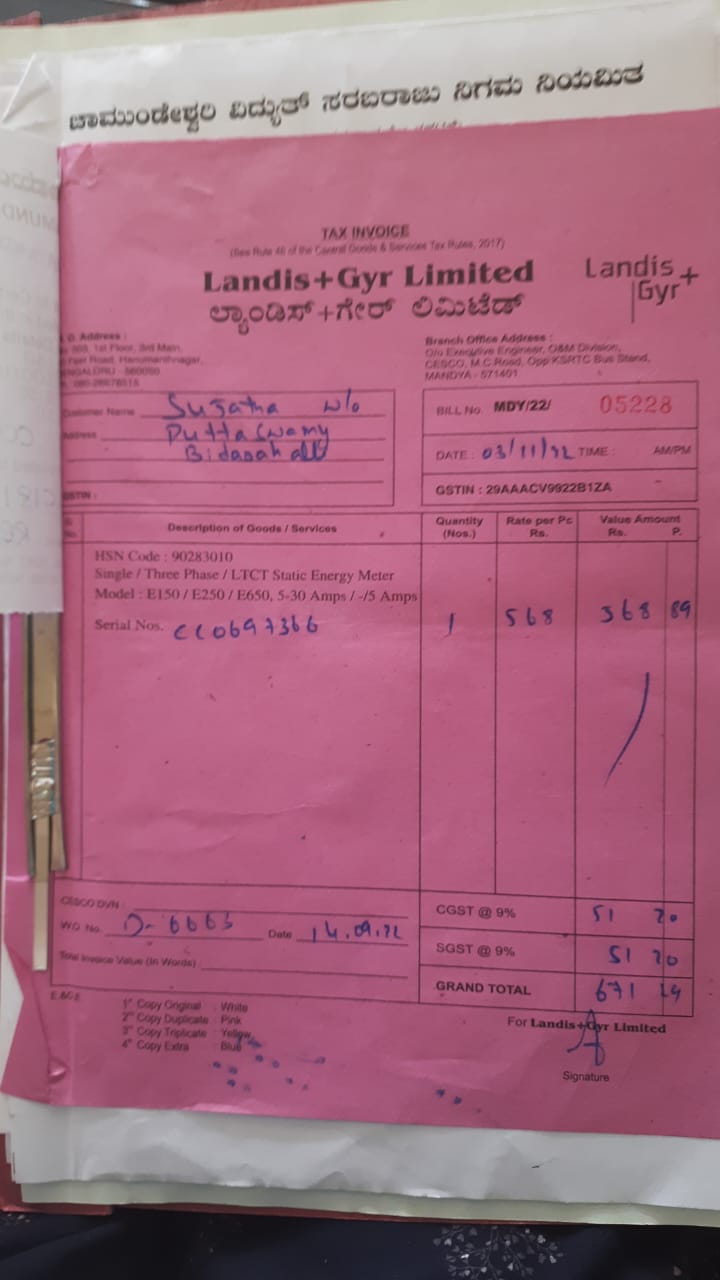 ಚಾಮುಂಡೇಶ್ವರಿ ವಿದ್ಯುತ್ ಸರಬರಾಜು ನಿಗಮ ನಿಯಮಿತ
TAX INVOICE
(See Rule 46 of the Central Goods & Services Tax Rules, 2017)
Landis+Gyr Limited
ಲ್ಯಾಂಡಿಸ್+ಗೇರ್ ಲಿಮಿಟೆಡ್
Landis
Gyr+
Address :
1st Floor, 3rd Main,
Road, Hanumanthnagar,
Branch Office Address :
O/o Executive Engineer, O&M Division,
CESCO, M.C.Road, Opp KSRTC Bus Stand,
MANDYA - 571401
Customer Name Sujatha W/o
Address Puttaswamy
GSTIN :
BILL No. MDY/22/ 05228
DATE : 03/11/22 TIME : AM/PM
GSTIN : 29AAACV9922B1ZA
Description of Goods / Services
Quantity (Nos.)
Rate per Pc Rs.
Value Amount Rs. P.
HSN Code : 90283010
Single / Three Phase / LTCT Static Energy Meter
Model : E150 / E250 / E650, 5-30 Amps / -/5 Amps
Serial Nos. CC0697366 1 568 568 89
CESCO DVN :
WO No. D-6663 Date 14.09.22
Total Invoice Value (In Words)
CGST @ 9% 51 20
SGST @ 9% 51 20
GRAND TOTAL 671
E.&O.E
1st Copy Original : White
2nd Copy Duplicate : Pink
3rd Copy Triplicate : Yellow
4th Copy Extra : Blue
For Landis+Gyr Limited
Signature